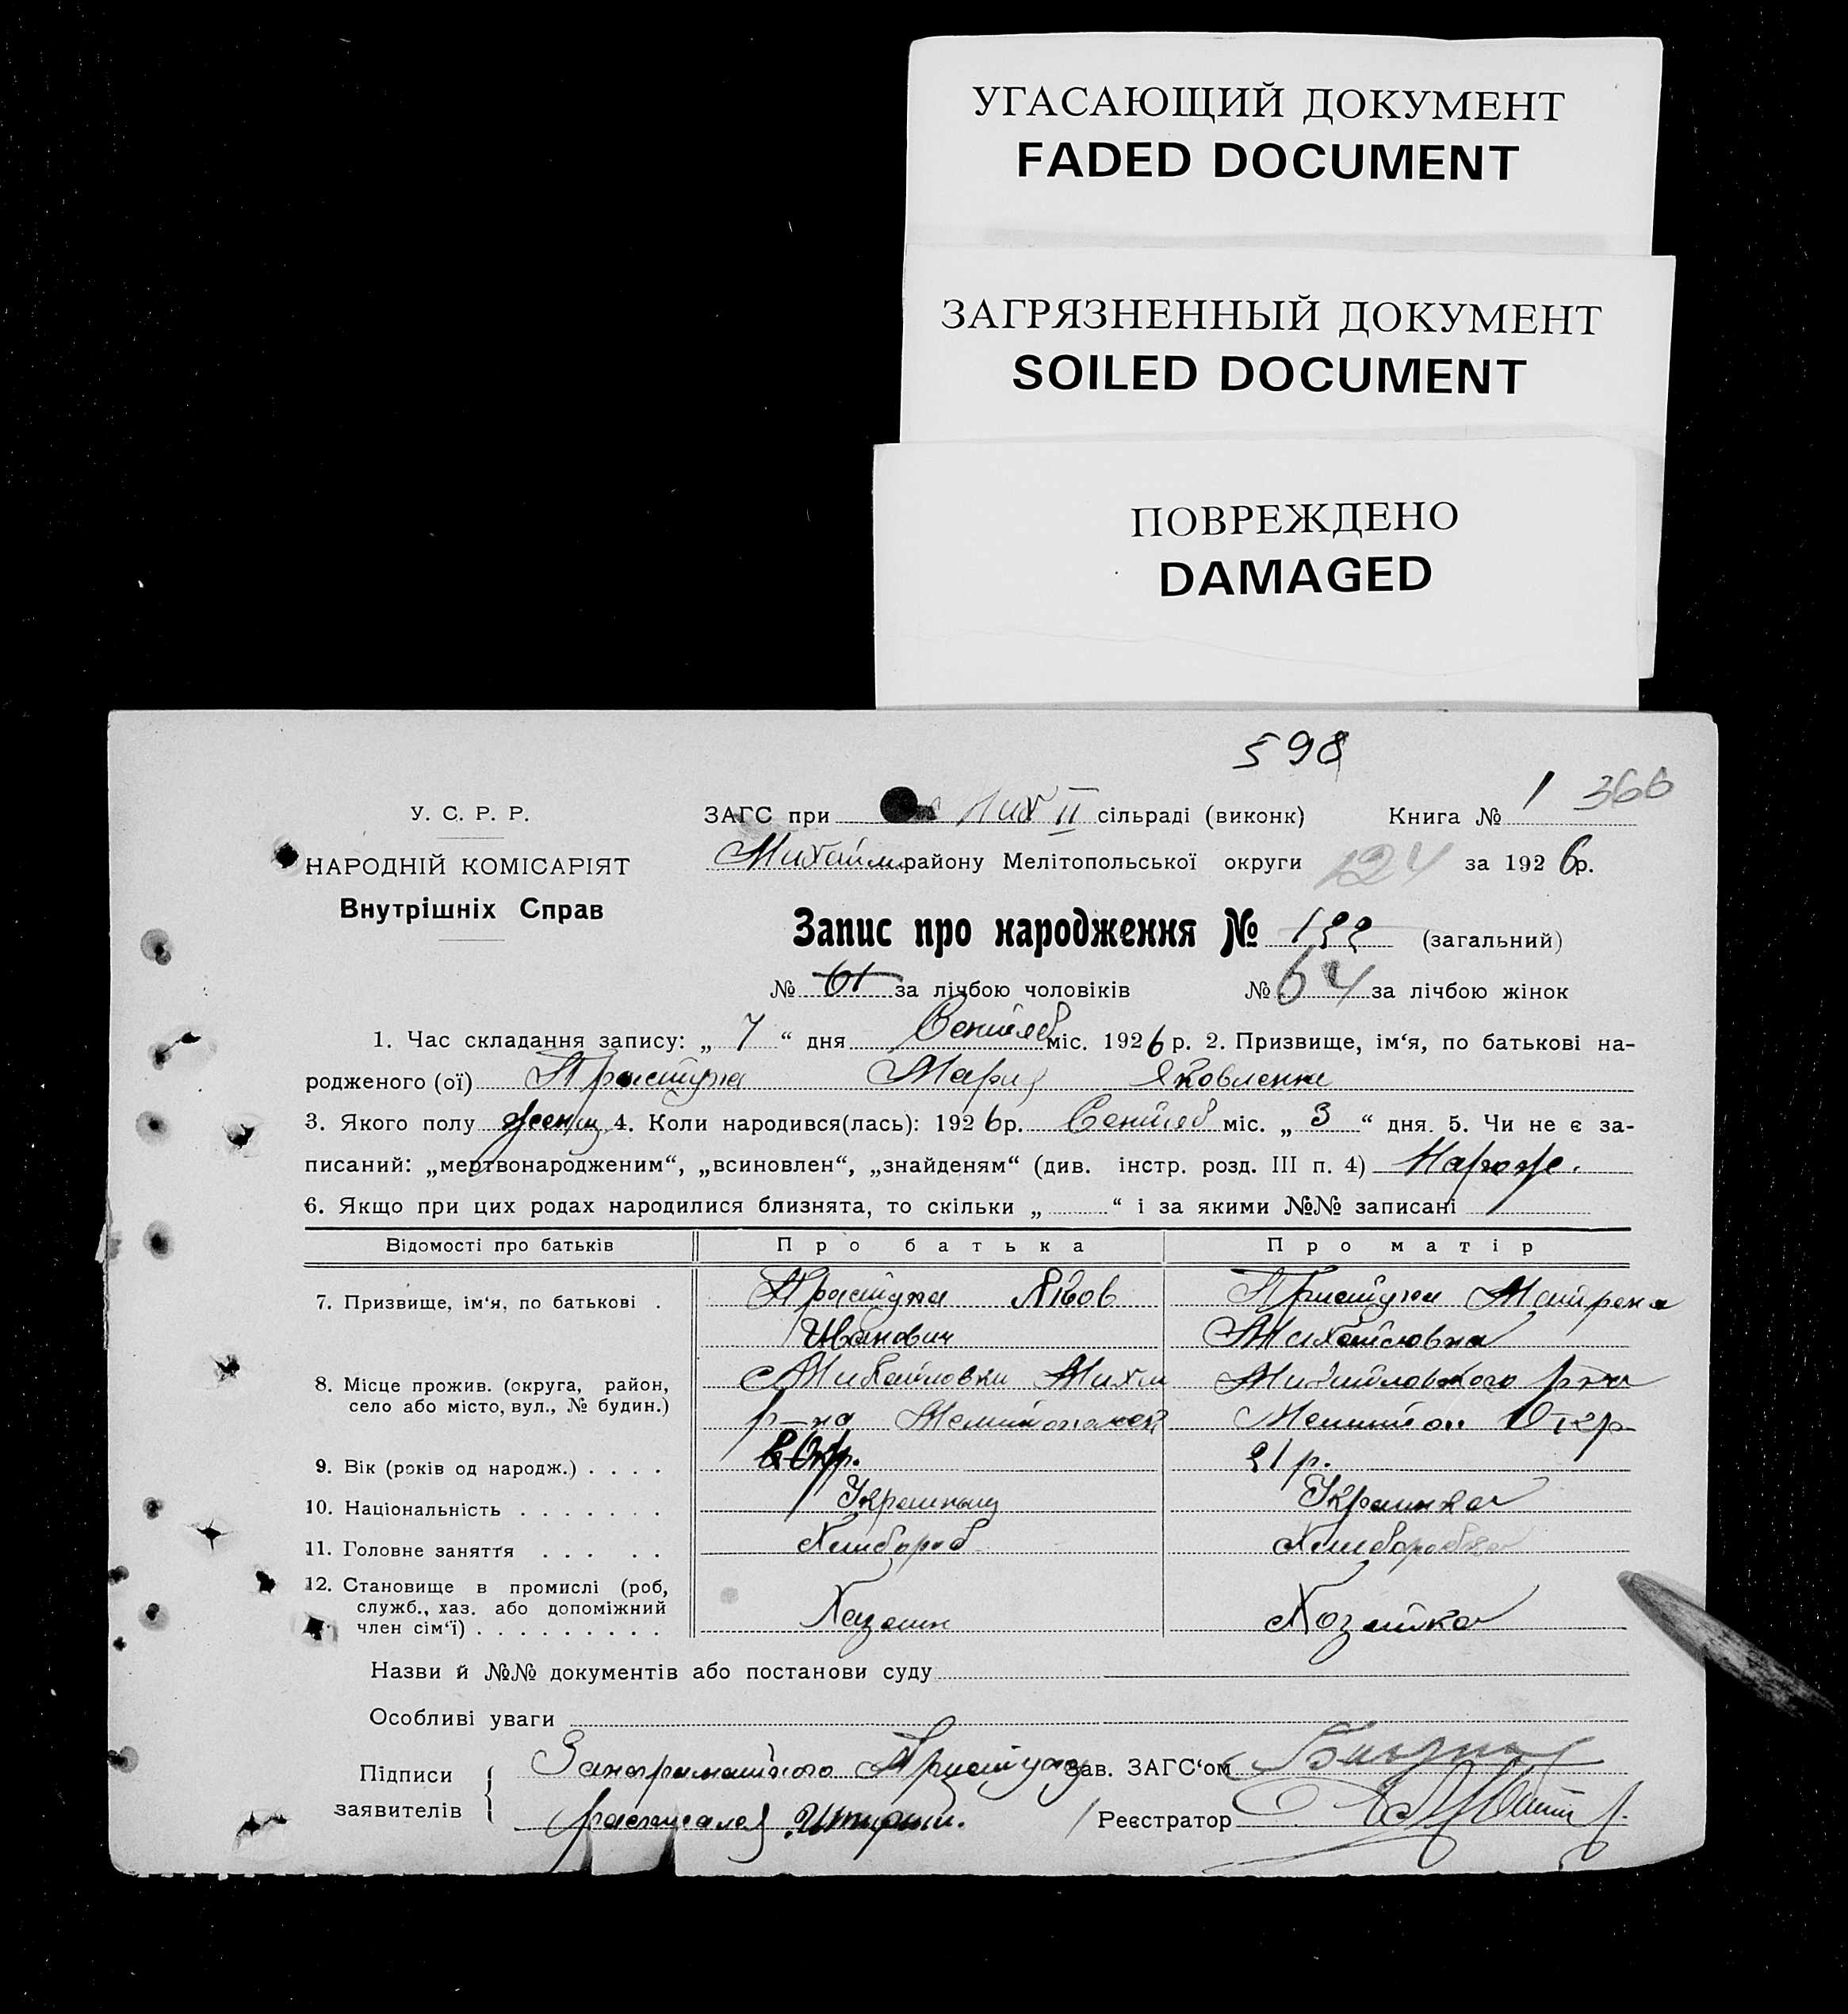 УГАСАЮЩИЙ ДОКУМЕНТ
FADED DOCUMENT
ЗАГРЯЗНЕННЫЙ ДОКУМЕНТ
SOILED DOCUMENT
ПОВРЕЖДЕНО
DAMAGED
598
366
У. С. Р. Р.
ЗАГС при Мих II сільраді (виконк) Книга № 1
НАРОДНІЙ КОМІСАРІЯТ
Михайл. району Мелітопольської округи 124 за 1926 р.
Внутрішніх Справ
Запис про народження № 122 (загальний)
№ 61 за лічбою чоловіків № 64 за лічбою жінок
1. Час складання запису: „ 7 “ дня Сентяб міс. 1926 р. 2. Призвище, ім‘я, по батькові на-
родженого (ої) Приступа Мария Яковленна
3. Якого полу женщ 4. Коли народився(лась): 1926 р. Сентяб міс. „ 3 “ дня. 5. Чи не є за-
писаний: „мертвонародженим“, „всиновлен“, „знайденям“ (див. інстр. розд. III п. 4)
6. Якщо при цих родах народилися близнята, то скільки „ “ і за якими №№ записані
Відомості про батьків Про батька Про матір
7. Призвище, ім‘я, по батькові . Приступа Яков Приступа Матрена
Иванович Михайловна
8. Місце прожив. (округа, район, Михайловки Михай Михайловского р-на
село або місто, вул., № будин.) р-на Мелитопольск Мелитоп Окр
9. Вік (років од народж.) . . . . 21 р.
10. Національність . . . . . . . Украинец Украинка
11. Головне заняття . . . . . Хлибороб Хлиборобка
12. Становище в промислі (роб,
служб., хаз. або допоміжний
член сім‘ї) . . . . . . . . . Хазаин Хозайка
Назви й №№ документів або постанови суду
Особливі уваги
Підписи Занеграмотного Приступу Зав. ЗАГС‘ом
заявителів расписался Реєстратор